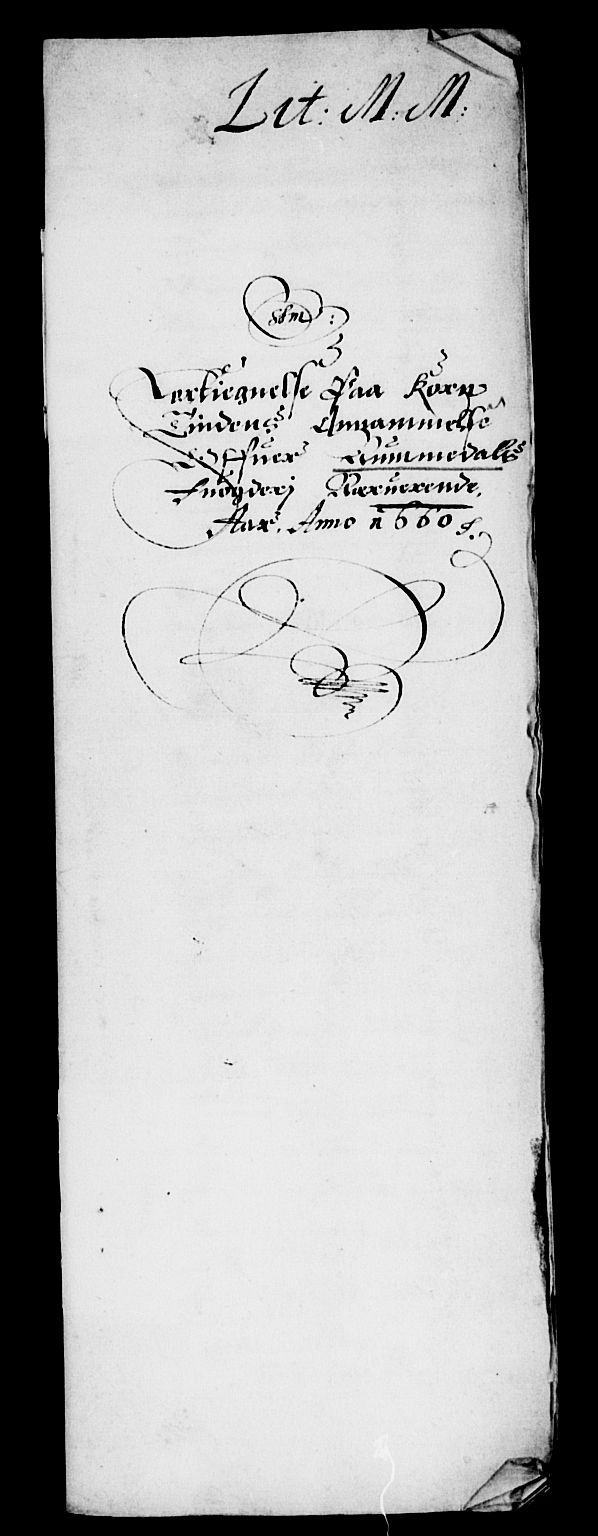 Lit: M: M:
Fortiegnelse Paa Korn
Tindens Anuammelse
Offuer Nummedals
Fuogderj Neruerende
Aar, Anno 1660